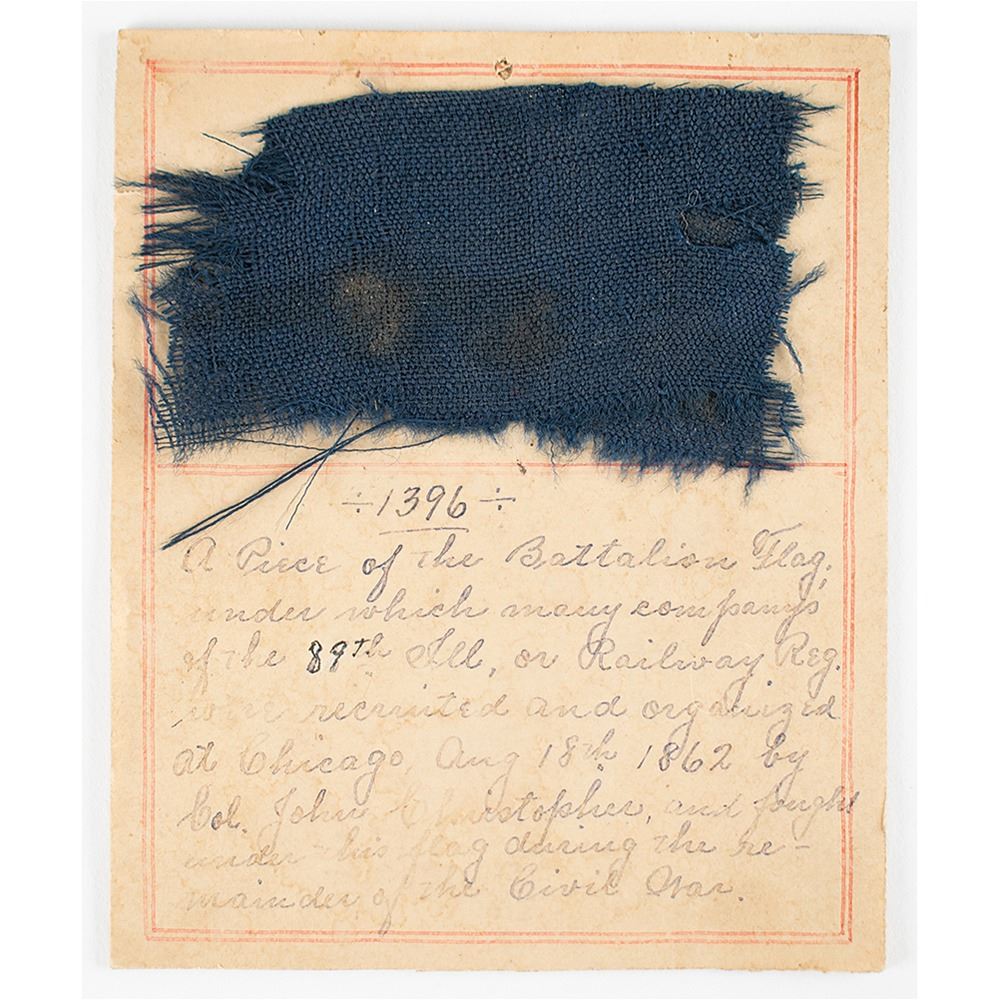 ÷ 1396 ÷
A Piece of the Battalion Flag,
under which many companys
of the 89th Ill, or Railway Reg.
were recruited and organized
at Chicago, Aug 18th 1862 by
Col. John Christopher, and fought
under this flag during the re-
mainder of the Civil War.